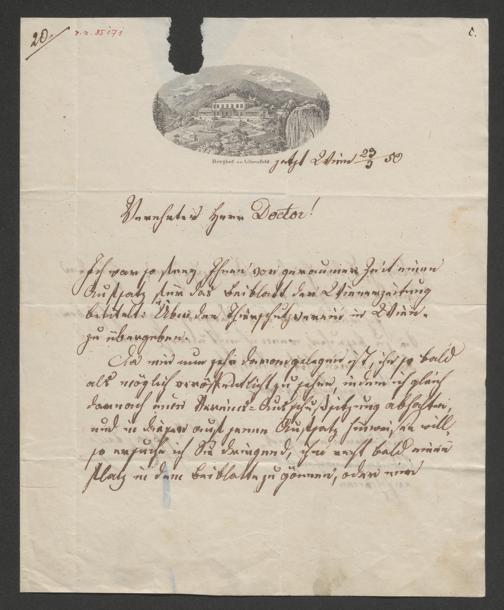 20.
c.
Berghof zu Lilienfeld
jetzt Wien 23/3 50
Verehrter Herr Doctor!
Ich war so frey Ihnen vor geraumer Zeit einen
Aufsatz für das Beiblatt der Wienerzeitung
betitelt: Über den Thierschutzverein in Wien.
zu übergeben.
Da mir nun sehr daran gelegen ist, ihn so bald
als möglich veröffentlicht zu sehen, indem ich gleich
darnach eine Vereins-Ausschußsitzung abhalten,
und in dieser auf jenen Aufsatz hinweisen will,
so ersuche ich Sie dringend, ihm recht bald einen
Platz in dem Beiblatte zu gönnen, oder mir